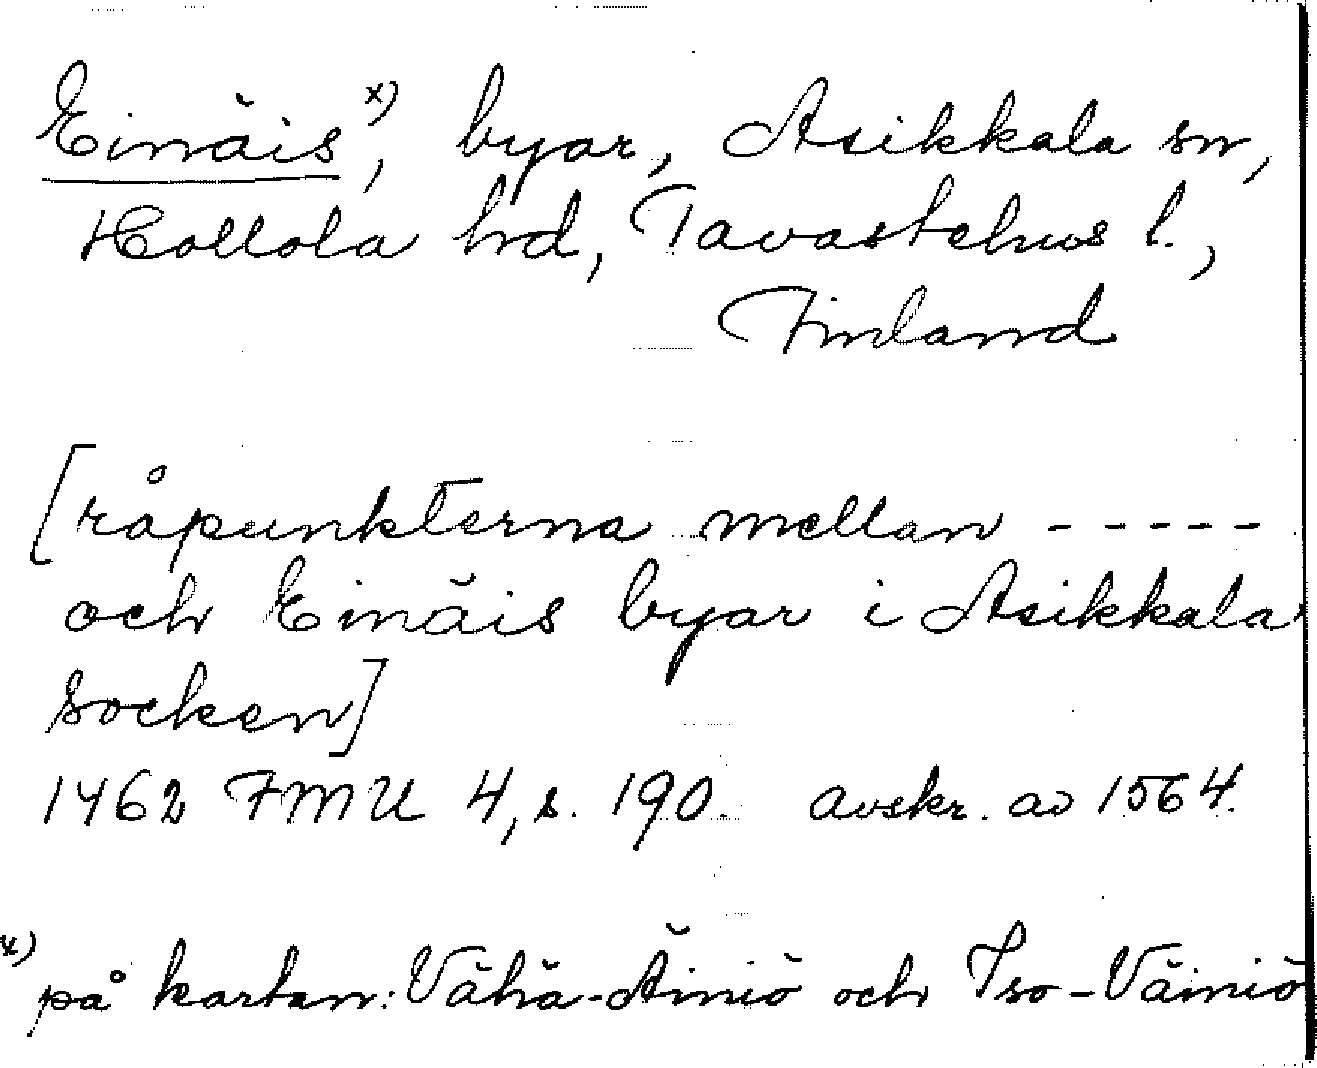 Einäis x), byar, Asikkala sn,
Hollola hd, Tavastehus l.,
Finland
[råpunkterna mellan - - - - -
och Einäis byar i Asikkala
socken]
1462 FMU 4, s. 190. avskr. av 1564.
x) på kartan: Vähä-Äiniö och Iso-Väiniö